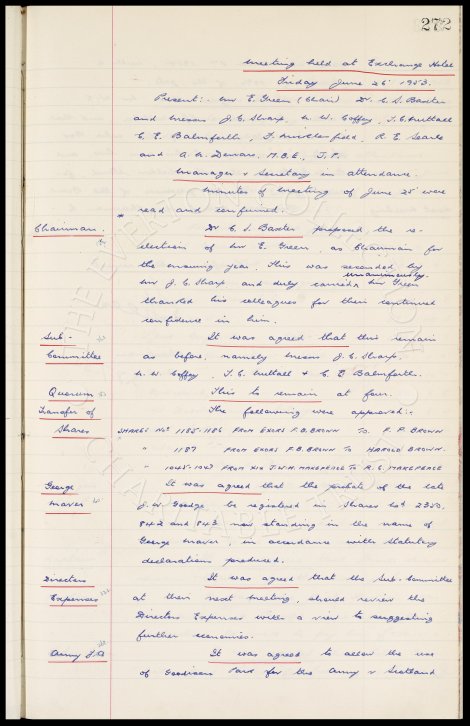 272
Meeting held at Exchange Hotel
Friday June 26' 1953.
Present:- Mr E. Green (Chair) Dr. C. S. Baxter
and Messrs J. C. Sharp, W. W. Coffey, T. C. Nuttall
C. E. Balmforth, F. Micklesfield, R. E. Searle
and A. W. Denaro, M.B.E., J.P.
Manager & Secretary in attendance.
Minutes of meeting of June 25' were
read and confirmed.
Chairman. Dr C. S. Baxter proposed the re-
election of Mr E. Green, as Chairman for
the ensuing year. This was seconded by
Mr J. C. Sharp and duly carried unanimously. Mr Green
thanked his colleagues for their continued
confidence in him.
Sub.- It was agreed that this remain
Committee as before, namely Messrs J. C. Sharp,
W. W. Coffey, T. C. Nuttall & C. E. Balmforth.
Quorum This to remain at four.
Transfer of The following were approved:-
Shares SHARES Nos 1185-1186 FROM EXORS F.B. BROWN TO F. P. BROWN
" 1187 FROM EXORS F.B. BROWN TO HAROLD BROWN.
" 1045-1047 FROM J.W.H. MAKEPEACE TO R. G. MAKEPEACE
George It was agreed that the probate of the late
Maver J. W. Goodge be registered in Shares Nos 2350,
842 and 843 now standing in the name of
George Maver in accordance with Statutory
declaration produced.
Directors It was agreed that the Sub-Committee
Expenses at their next meeting, should review the
Directors Expenses with a view to suggesting
further economies.
Army F.A It was agreed to allow the use
of Goodison Park for the Army v Scotland